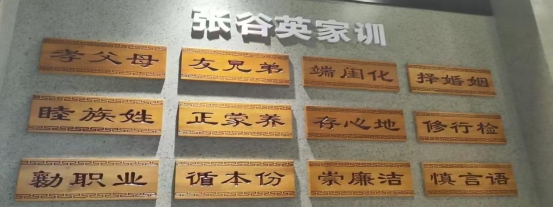 张谷英家训
孝父母 友兄弟 端闺化 择婚姻
睦族姓 正蒙养 存心地 修行检
勷职业 循本份 崇廉洁 慎言语